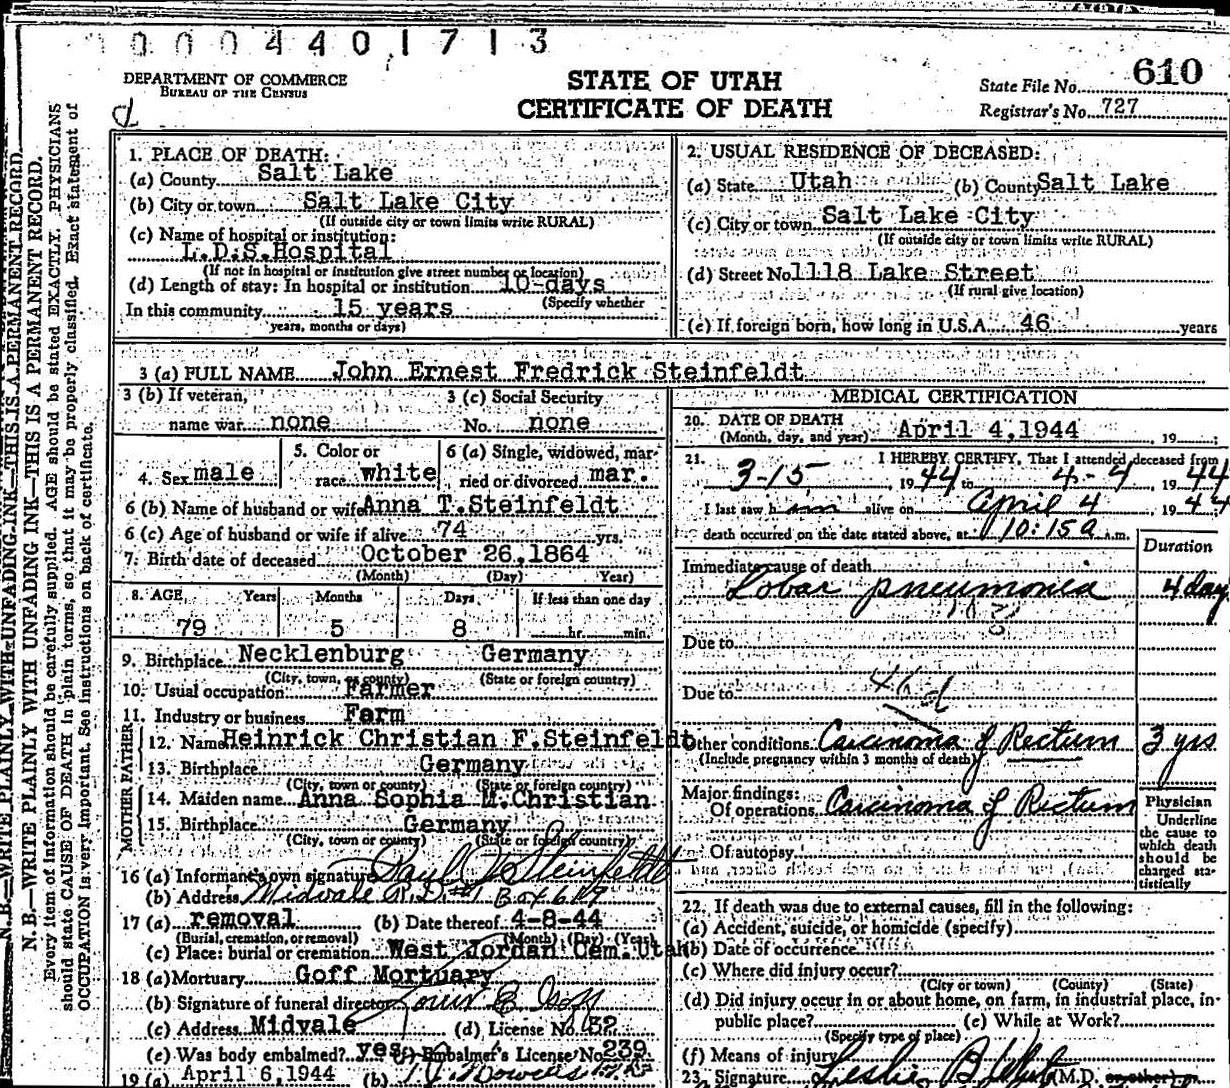 0 0 0 4 4 0 1 7 1 3
DEPARTMENT OF COMMERCE
BUREAU OF THE CENSUS
d
STATE OF UTAH
CERTIFICATE OF DEATH
State File No. 610
Registrar's No. 727
N.B.—WRITE PLAINLY WITH UNFADING INK—THIS IS A PERMANENT RECORD.
N. B.—WRITE PLAINLY WITH UNFADING INK—THIS IS A PERMANENT RECORD.
Every item of information should be carefully supplied. AGE should be stated EXACTLY. PHYSICIANS
should state CAUSE OF DEATH in plain terms, so that it may be properly classified. Exact statement of
OCCUPATION is very important. See instructions on back of certificate.
1. PLACE OF DEATH:
(a) County Salt Lake
(b) City or town Salt Lake City
(If outside city or town limits write RURAL)
(c) Name of hospital or institution:
L.D.S.Hospital
(If not in hospital or institution give street number or location)
(d) Length of stay: In hospital or institution 10-days
(Specify whether
In this community 15 years
years, months or days)
2. USUAL RESIDENCE OF DECEASED:
(a) State Utah (b) County Salt Lake
(c) City or town Salt Lake City
(If outside city or town limits write RURAL)
(d) Street No 1118 Lake Street
(If rural give location)
(e) If foreign born, how long in U.S.A. 46 years
3 (a) FULL NAME John Ernest Fredrick Steinfeldt
3 (b) If veteran, 3 (c) Social Security
name war none No. none
4. Sex male 5. Color or race white 6 (a) Single, widowed, mar-
ried or divorced mar.
6 (b) Name of husband or wife Anna T.Steinfeldt
6 (c) Age of husband or wife if alive 74 yrs.
7. Birth date of deceased October 26,1864
(Month) (Day) Year)
8. AGE Years Months Days If less than one day
79 5 8 hr. min.
9. Birthplace Necklenburg Germany
(City, town, or county) (State or foreign country)
10. Usual occupation Farmer
11. Industry or business Farm
FATHER
12. Name Heinrick Christian F.Steinfeldt
13. Birthplace Germany
(City, town or county) (State or foreign country)
MOTHER
14. Maiden name Anna Sophia M.Christian
15. Birthplace Germany
(City, town or county) (State or foreign country)
16 (a) Informant's own signature Paul J Steinfeldt
(b) Address Midvale R.D.#1 Box 617
17 (a) removal (b) Date thereof 4-8-44
(Burial, cremation, or removal) (Month) (Day) (Year)
(c) Place: burial or cremation West Jordan Cem.Utah
18 (a) Mortuary Goff Mortuary
(b) Signature of funeral director Goff
(c) Address Midvale (d) License No. 152
(e) Was body embalmed? yes (f) Embalmer's License No. 239
19 (a) April 6,1944 (b)
MEDICAL CERTIFICATION
20. DATE OF DEATH
(Month, day, and year) April 4,1944, 19 ;
21. I HEREBY CERTIFY, That I attended deceased from
3-15, 1944 to 4-4, 1944
I last saw him alive on April 4, 1944
death occurred on the date stated above, at 10:15a .m.
Duration
Immediate cause of death
Lobar pneumonia 4 day
Due to
Due to
46 d
Other conditions Carcinoma of Rectum 3 yrs
(Include pregnancy within 3 months of death)
Major findings:
Of operations Carcinoma of Rectum
Of autopsy
Physician
Underline
the cause to
which death
should be
charged sta-
tistically
22. If death was due to external causes, fill in the following:
(a) Accident, suicide, or homicide (specify)
(b) Date of occurrence
(c) Where did injury occur?
(City or town) (County) (State)
(d) Did injury occur in or about home, on farm, in industrial place, in-
public place? (e) While at Work?
(Specify type of place)
(f) Means of injury
23. Signature Leslie (M.D. or other)